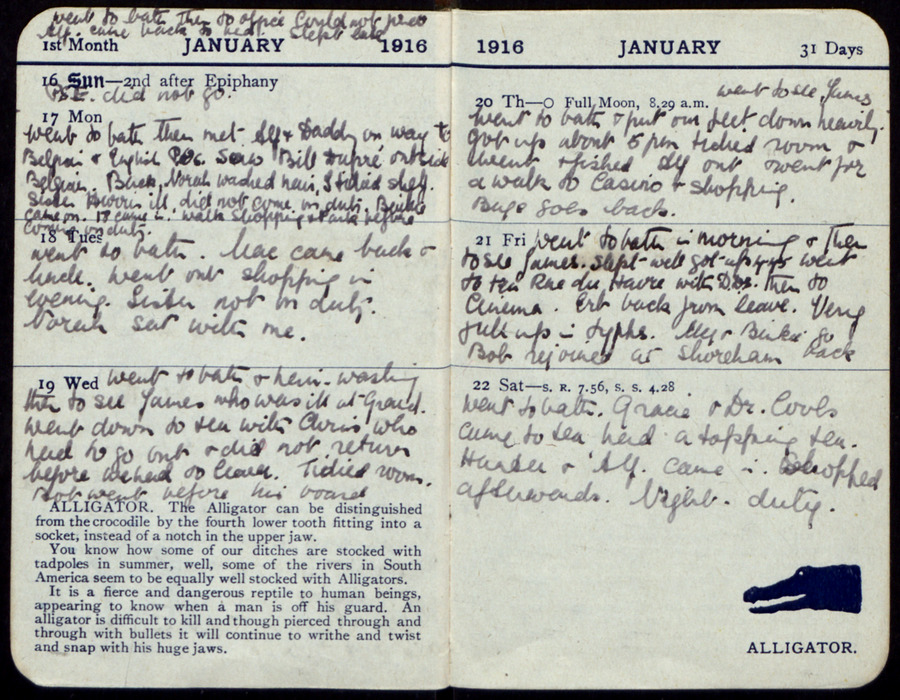 went to bath then to office Could not
Alf. came back to
1st Month JANUARY 1916
16 Sun—2nd after Epiphany
did not go.
17 Mon
Went to bath then met Alf & Daddy on way to
Belgian & English P.Os. Saw Bill Dupré outside
Belgian. Back, Norah washed hair, I tidied shelf.
Sister ill, did not come on duty. Binkie
came on. came in. Walk shopping & before
coming on duty.
18 Tues
went to bath. Mac came back &
went out shopping in
evening. Sister not on duty.
Norah sat with me.
19 Wed went to bath & hair-washing
then to see James who was ill at Grand.
Went down to tea with Chris who
had to go out & did not return
before we had to leave. Tidied room.
Bob went before his board
ALLIGATOR. The Alligator can be distinguished
from the crocodile by the fourth lower tooth fitting into a
socket, instead of a notch in the upper jaw.
You know how some of our ditches are stocked with
tadpoles in summer, well, some of the rivers in South
America seem to be equally well stocked with Alligators.
It is a fierce and dangerous reptile to human beings,
appearing to know when a man is off his guard. An
alligator is difficult to kill and though pierced through and
through with bullets it will continue to writhe and twist
and snap with his huge jaws.
1916 JANUARY 31 Days
went to see James
20 Th—O Full Moon, 8.29 a.m.
Went to bath & put our feet down heavily.
Got up about 5 pm tidied room &
went & fished Alf out & went for
a walk to Casino & shopping.
goes back.
21 Fri Went to bath in morning & then
to see James. Slept well got up 4.45 went
to tea Rue du Havre with then to
Cinema. Ert back from leave. Very
full up in typhs. Alf & Binkie go
Bob rejoined at Shoreham back
22 Sat—S. R. 7.56, S. S. 4.28
Went to bath. Gracie & Dr. Cools
came to tea had a topping tea.
Hunter & Alf. came in. Shopped
afterwards. Night duty.
ALLIGATOR.